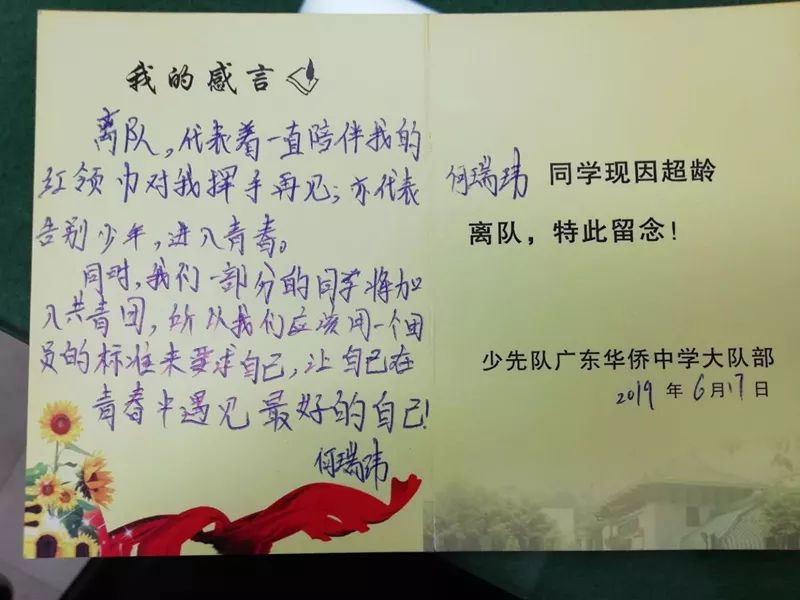 我的感言
离队，代表着一直陪伴我的
红领巾对我挥手再见；亦代表
告别少年，进入青春。
同时，我们一部分的同学将加
入共青团，所以我们应该用一个团
员的标准来要求自己，让自己在
青春中遇见最好的自己！
何瑞玮
何瑞玮 同学现因超龄
离队，特此留念！
少先队广东华侨中学大队部
2019 年 6 月 17 日